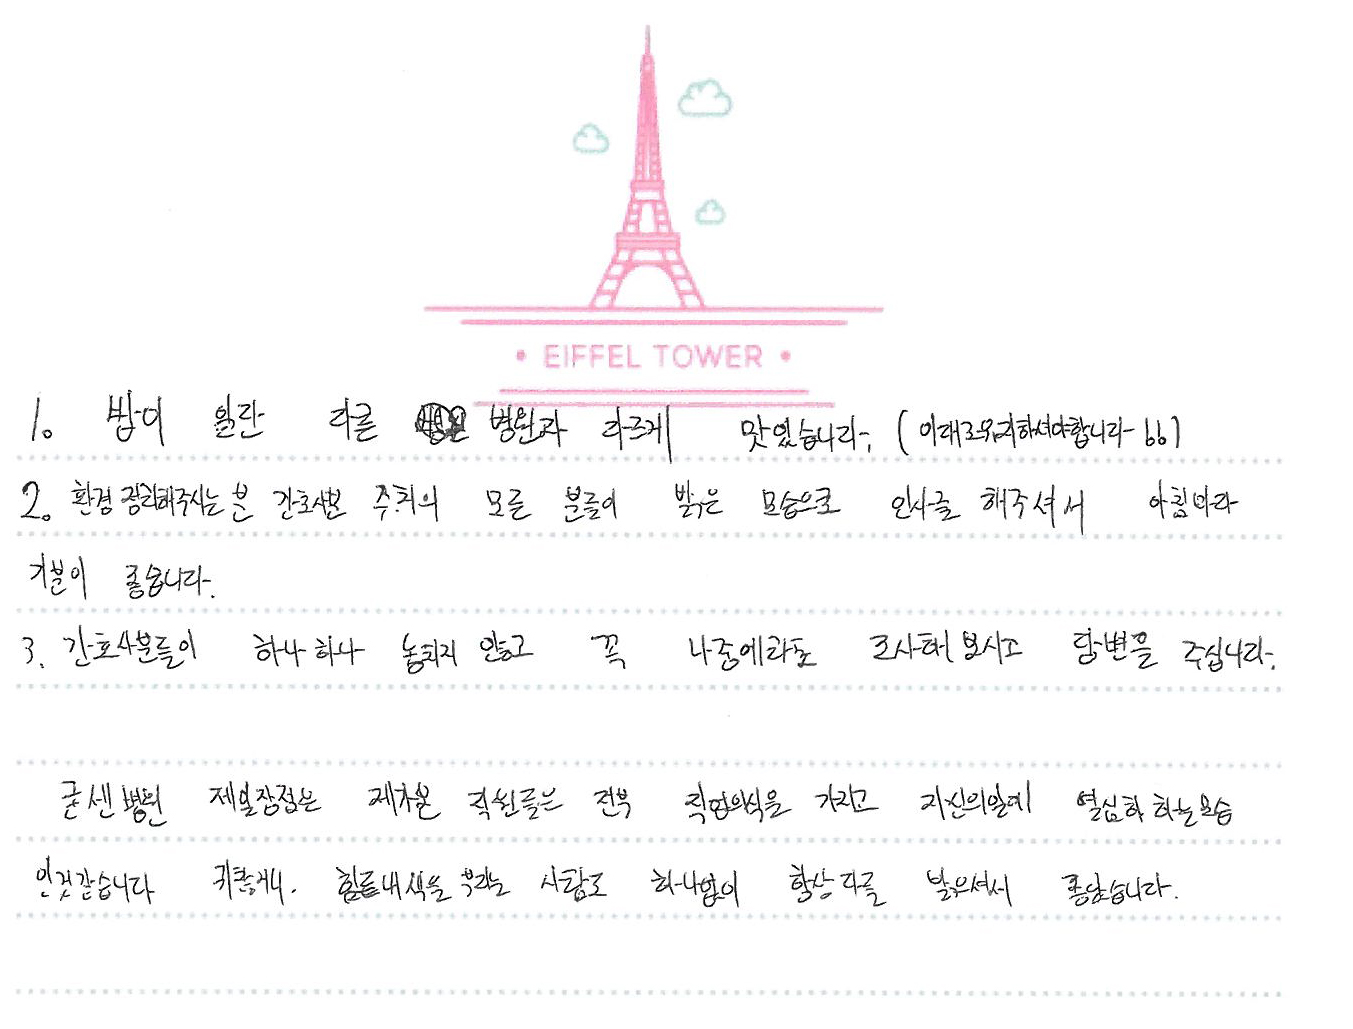 EIFFEL TOWER
1. 밥이 일단 다를 병원과 다르게 맛있습니다. (이대로유지하셔야합니다 bb)
2. 환경 정리해주시는 분 간호사분 주위의 모든 분들이 밝은 모습으로 인사를 해주셔서 아침마다
기분이 좋습니다.
3. 간호사분들이 하나하나 놓치지 않고 꼭 나중에라도 조사해 보시고 답변을 주십니다.
굳센병원 제일장점은 제가본 직원들은 전부 직업의식을 가지고 자신의일에 열심히 하는모습
인것같습니다 귀찮거나. 힘든내색을 부리는 사람도 하나없이 항상 다들 밝으셔서 좋았습니다.